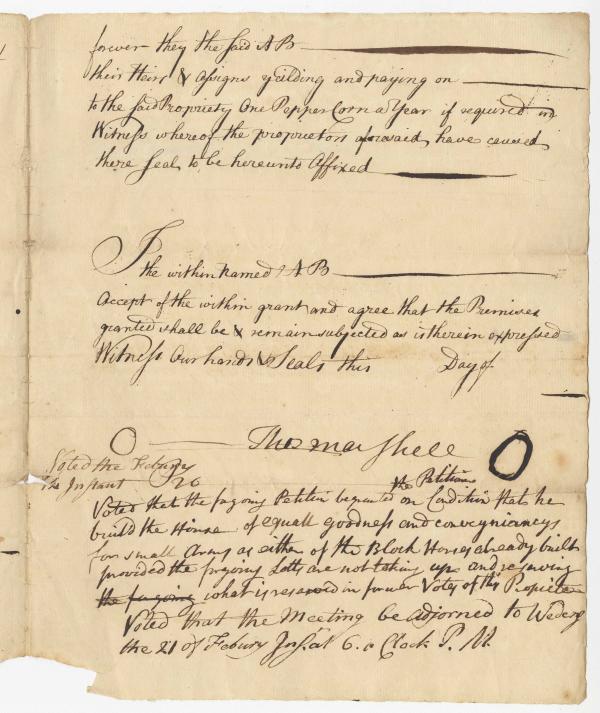 forever they the Said A B
their Heirs & assigns yeilding and paying on
to the said Propriety One Pepper Corn a Year if required in
Witness whereof the proprietors aforsaid have caused
there Seal to be hereunto Affixed
I the within named A B
Accept of the within grant and agree that the Premises
granted shall be & remain subjected as is therein expressed
Witness Our hands & Seals this Day of
Thos marshell
Voted the Febury
the Instant 20
the Petition
Voted that the fugoing Petitin be granted on Condition that he
build the House of equall goodness and conveyniancys
for small Arms as either of the Block Horses already built
provided the fugoing Lotts are not taking up and reserving
the fugoing what is reserved in former Votes of this Propriete
Voted that the Meeting be adjorned to Wedensy
the 21 of Febury Inst. at 6. o Clock P. M.